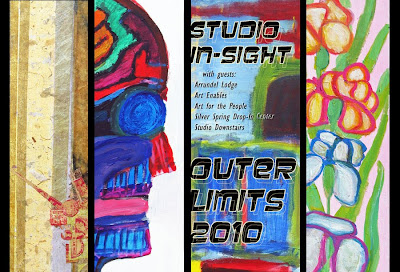 STUDIO
IN-SIGHT
with guests:
Arrundel Lodge
Art Enables
Art for the People
Silver Spring Drop-In Center
Studio Downstairs
OUTER
LIMITS
2010